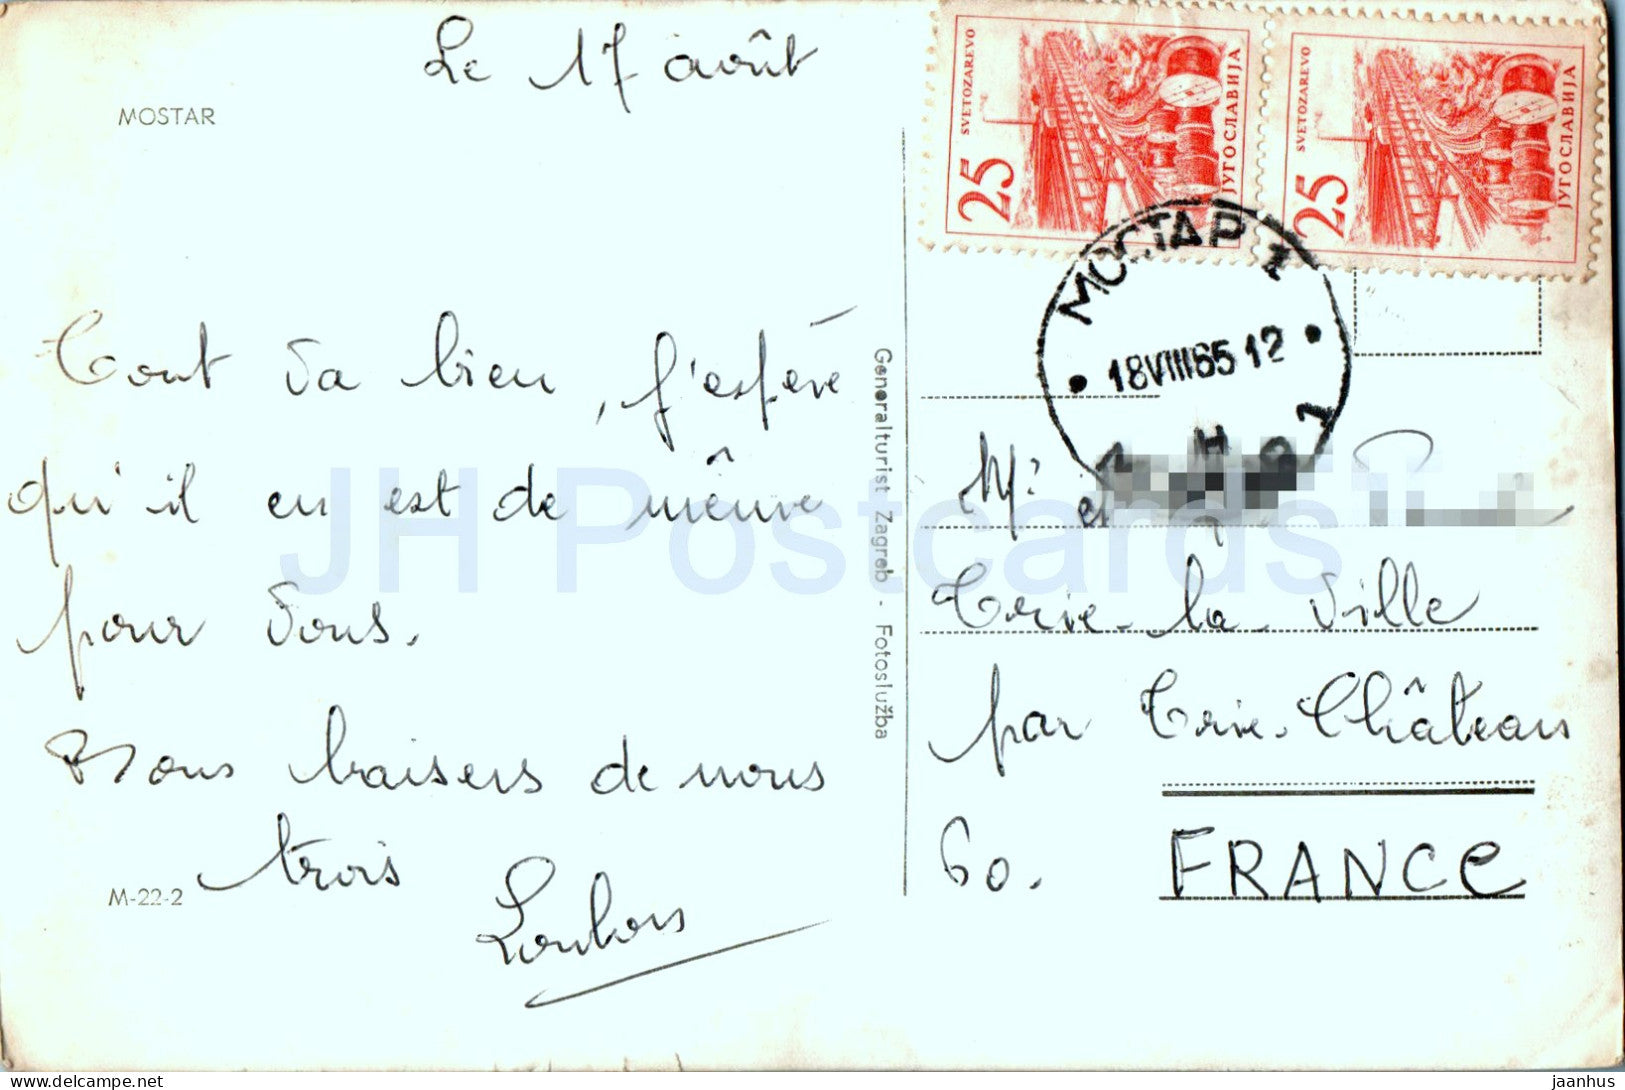 Le 17 août
MOSTAR
Tout va bien, j'espère
qu'il en est de même
pour vous.
Bons baisers de nous
trois
Loubous
M-22-2
Generalturist Zagreb - Fotoslužba
25
SVETOZAREVO
ЈУГОСЛАВИЈА
25
SVETOZAREVO
ЈУГОСЛАВИЈА
МОСТАР 1
18VIII65 12
Mr et
Trie-la-Ville
par Trie-Château
60. FRANCE
JH Postcards
jaanhus
delcampe.net